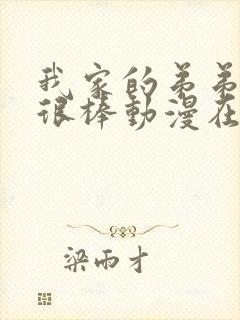 我家的弟弟
很棒動漫在
梁雨才